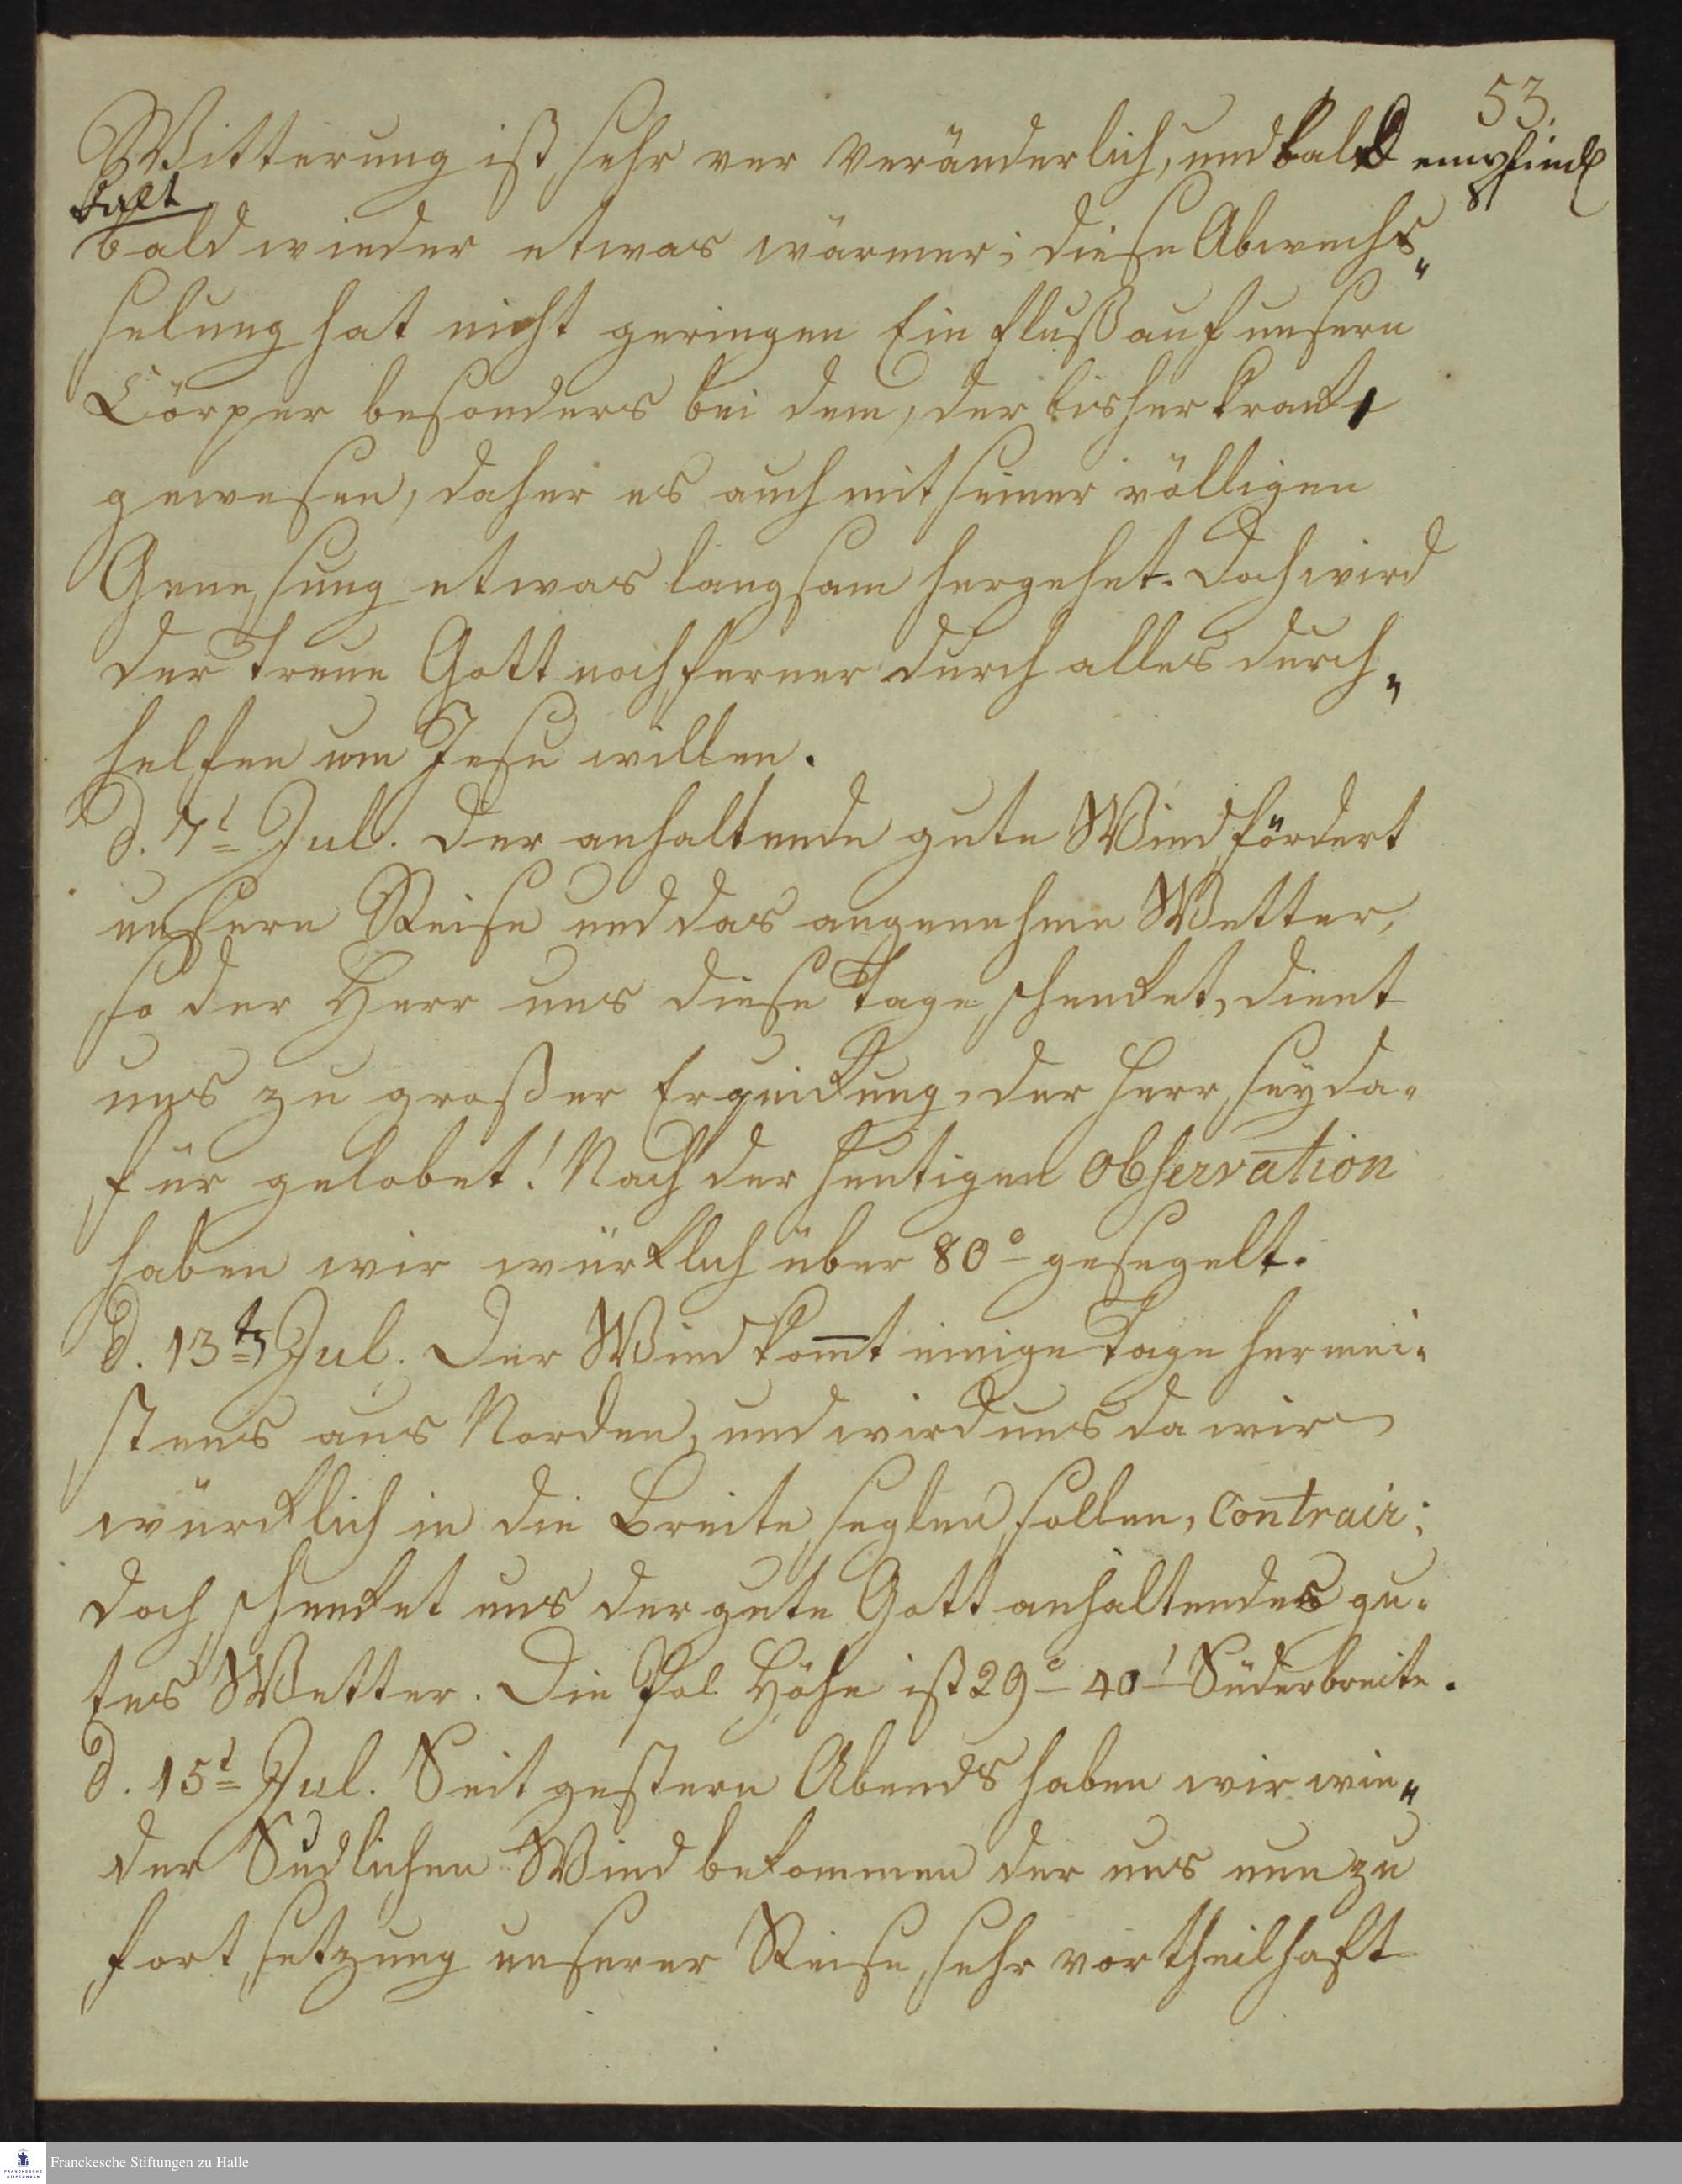 53.
Witterung ist sehr ver veränderlich, und bald empfindl
kalt
bald wieder etwas wärmer; diese Abwechs„
selung hat nicht geringen Einfluß auf unsern
Cörper besonders bei dem, der bisher krank
gewesen, daher es auch mit seiner völligen
Genesung etwas langsam hergehet. Doch wird
der treue Gott noch ferner durch alles durch„
helfen um Jesu willen.
d. 7t Jul. Der anhaltende gute Wind fördert
unsere Reise und das angenehme Wetter,
so der Herr uns diese Tage schenket, dient
uns zu großer Erquickung, der Herr sey da„
für gelobet! Nach der heutigen Observation
haben wir würklich über 80° gesegelt.
d. 13ts Jul. Der Wind kom̅t einige Tage her mei„
stens aus Norden, und wird uns da wir
würcklich in die Breite seglen sollen, Contrair;
doch schenket uns der gute Gott anhaltendes gu„
tes Wetter. Die Pol Höhe ist 29° 40' Süderbreite.
d. 15t Jul. Seit gestern Abends haben wir wie„
der Südlichen Wind bekommen der uns nun zu
fortsetzung unserer Reise sehr vortheilhaft
Franckesche Stiftungen zu Halle
FRANCKESCHE
STIFTUNGEN